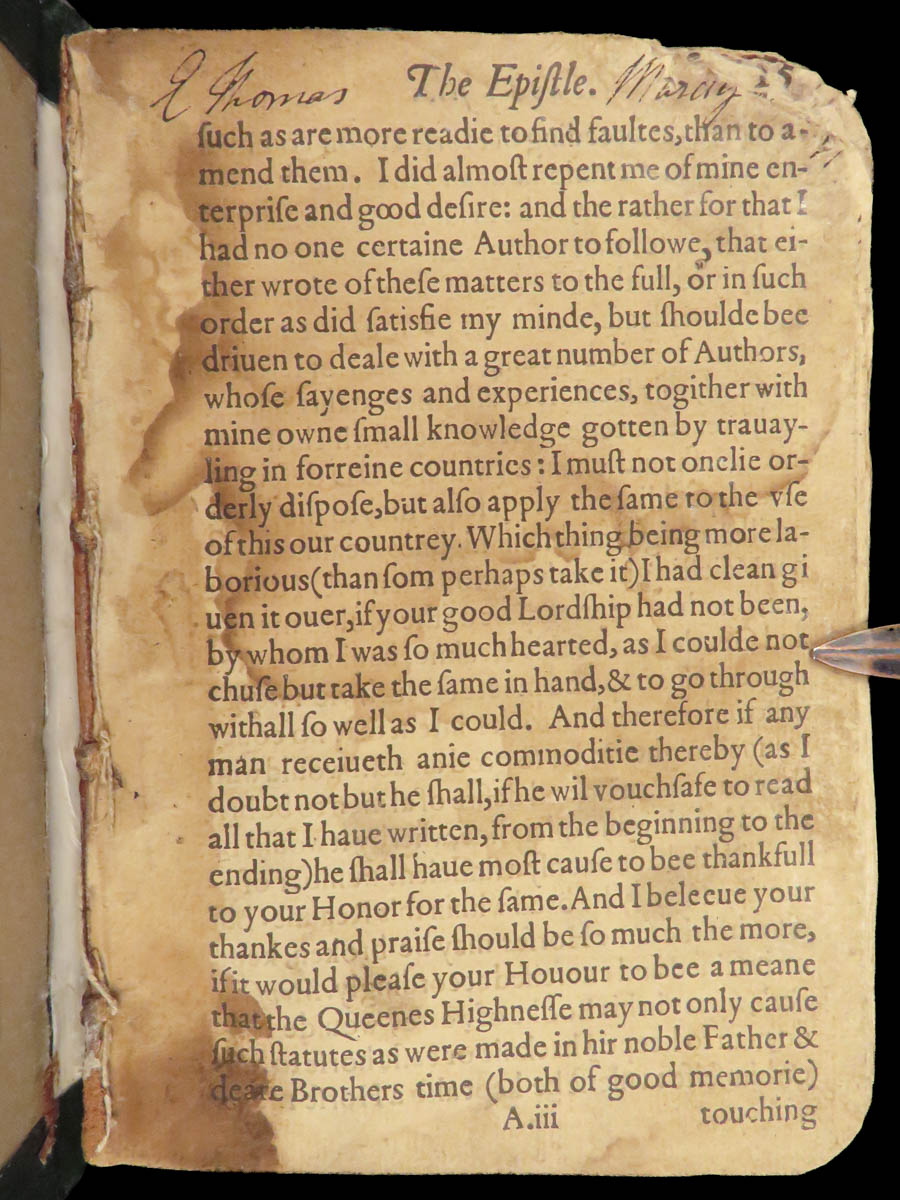 E Thomas The Epiſtle. 
ſuch as are more readie to find faultes, than to a-
mend them. I did almoſt repent me of mine en-
terpriſe and good deſire: and the rather for that I
had no one certaine Author to followe, that ei-
ther wrote of theſe matters to the full, or in ſuch
order as did ſatisfie my minde, but ſhoulde bee
driuen to deale with a great number of Authors,
whoſe ſayenges and experiences, togither with
mine owne ſmall knowledge gotten by trauay-
ling in forreine countries: I muſt not onelie or-
derly diſpoſe, but alſo apply the ſame to the vſe
of this our countrey. Which thing being more la-
borious (than ſom perhaps take it) I had clean gi
uen it ouer, if your good Lordſhip had not been,
by whom I was ſo much hearted, as I coulde not
chuſe but take the ſame in hand, & to go through
withall ſo well as I could. And therefore if any
man receiueth anie commoditie thereby (as I
doubt not but he ſhall, if he wil vouchſafe to read
all that I haue written, from the beginning to the
ending) he ſhall haue moſt cauſe to bee thankfull
to your Honor for the ſame. And I beleeue your
thankes and praiſe ſhould be ſo much the more,
if it would pleaſe your Houour to bee a meane
that the Queenes Highneſſe may not only cauſe
ſuch ſtatutes as were made in hir noble Father &
deare Brothers time (both of good memorie)
A.iii touching